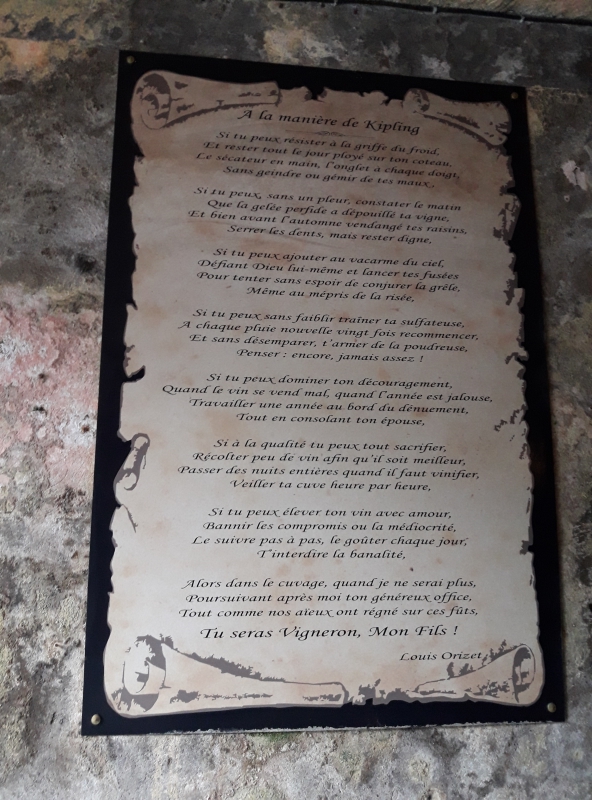 A la manière de Kipling
Si tu peux résister à la griffe du froid,
Et rester tout le jour ployé sur ton coteau,
Le sécateur en main, l'onglet à chaque doigt,
Sans geindre ou gémir de tes maux,
Si tu peux, sans un pleur, constater le matin
Que la gelée perfide a dépouillé ta vigne,
Et bien avant l'automne vendangé tes raisins,
Serrer les dents, mais rester digne,
Si tu peux ajouter au vacarme du ciel,
Défiant Dieu lui-même et lancer tes fusées
Pour tenter sans espoir de conjurer la grêle,
Même au mépris de la risée,
Si tu peux sans faiblir traîner ta sulfateuse,
A chaque pluie nouvelle vingt fois recommencer,
Et sans désemparer, t'armer de la poudreuse,
Penser : encore, jamais assez !
Si tu peux dominer ton découragement,
Quand le vin se vend mal, quand l'année est jalouse,
Travailler une année au bord du dénuement,
Tout en consolant ton épouse,
Si à la qualité tu peux tout sacrifier,
Récolter peu de vin afin qu'il soit meilleur,
Passer des nuits entières quand il faut vinifier,
Veiller ta cuve heure par heure,
Si tu peux élever ton vin avec amour,
Bannir les compromis ou la médiocrité,
Le suivre pas à pas, le goûter chaque jour,
T'interdire la banalité,
Alors dans le cuvage, quand je ne serai plus,
Poursuivant après moi ton généreux office,
Tout comme nos aïeux ont régné sur ces fûts,
Tu seras Vigneron, Mon Fils !
Louis Orizet